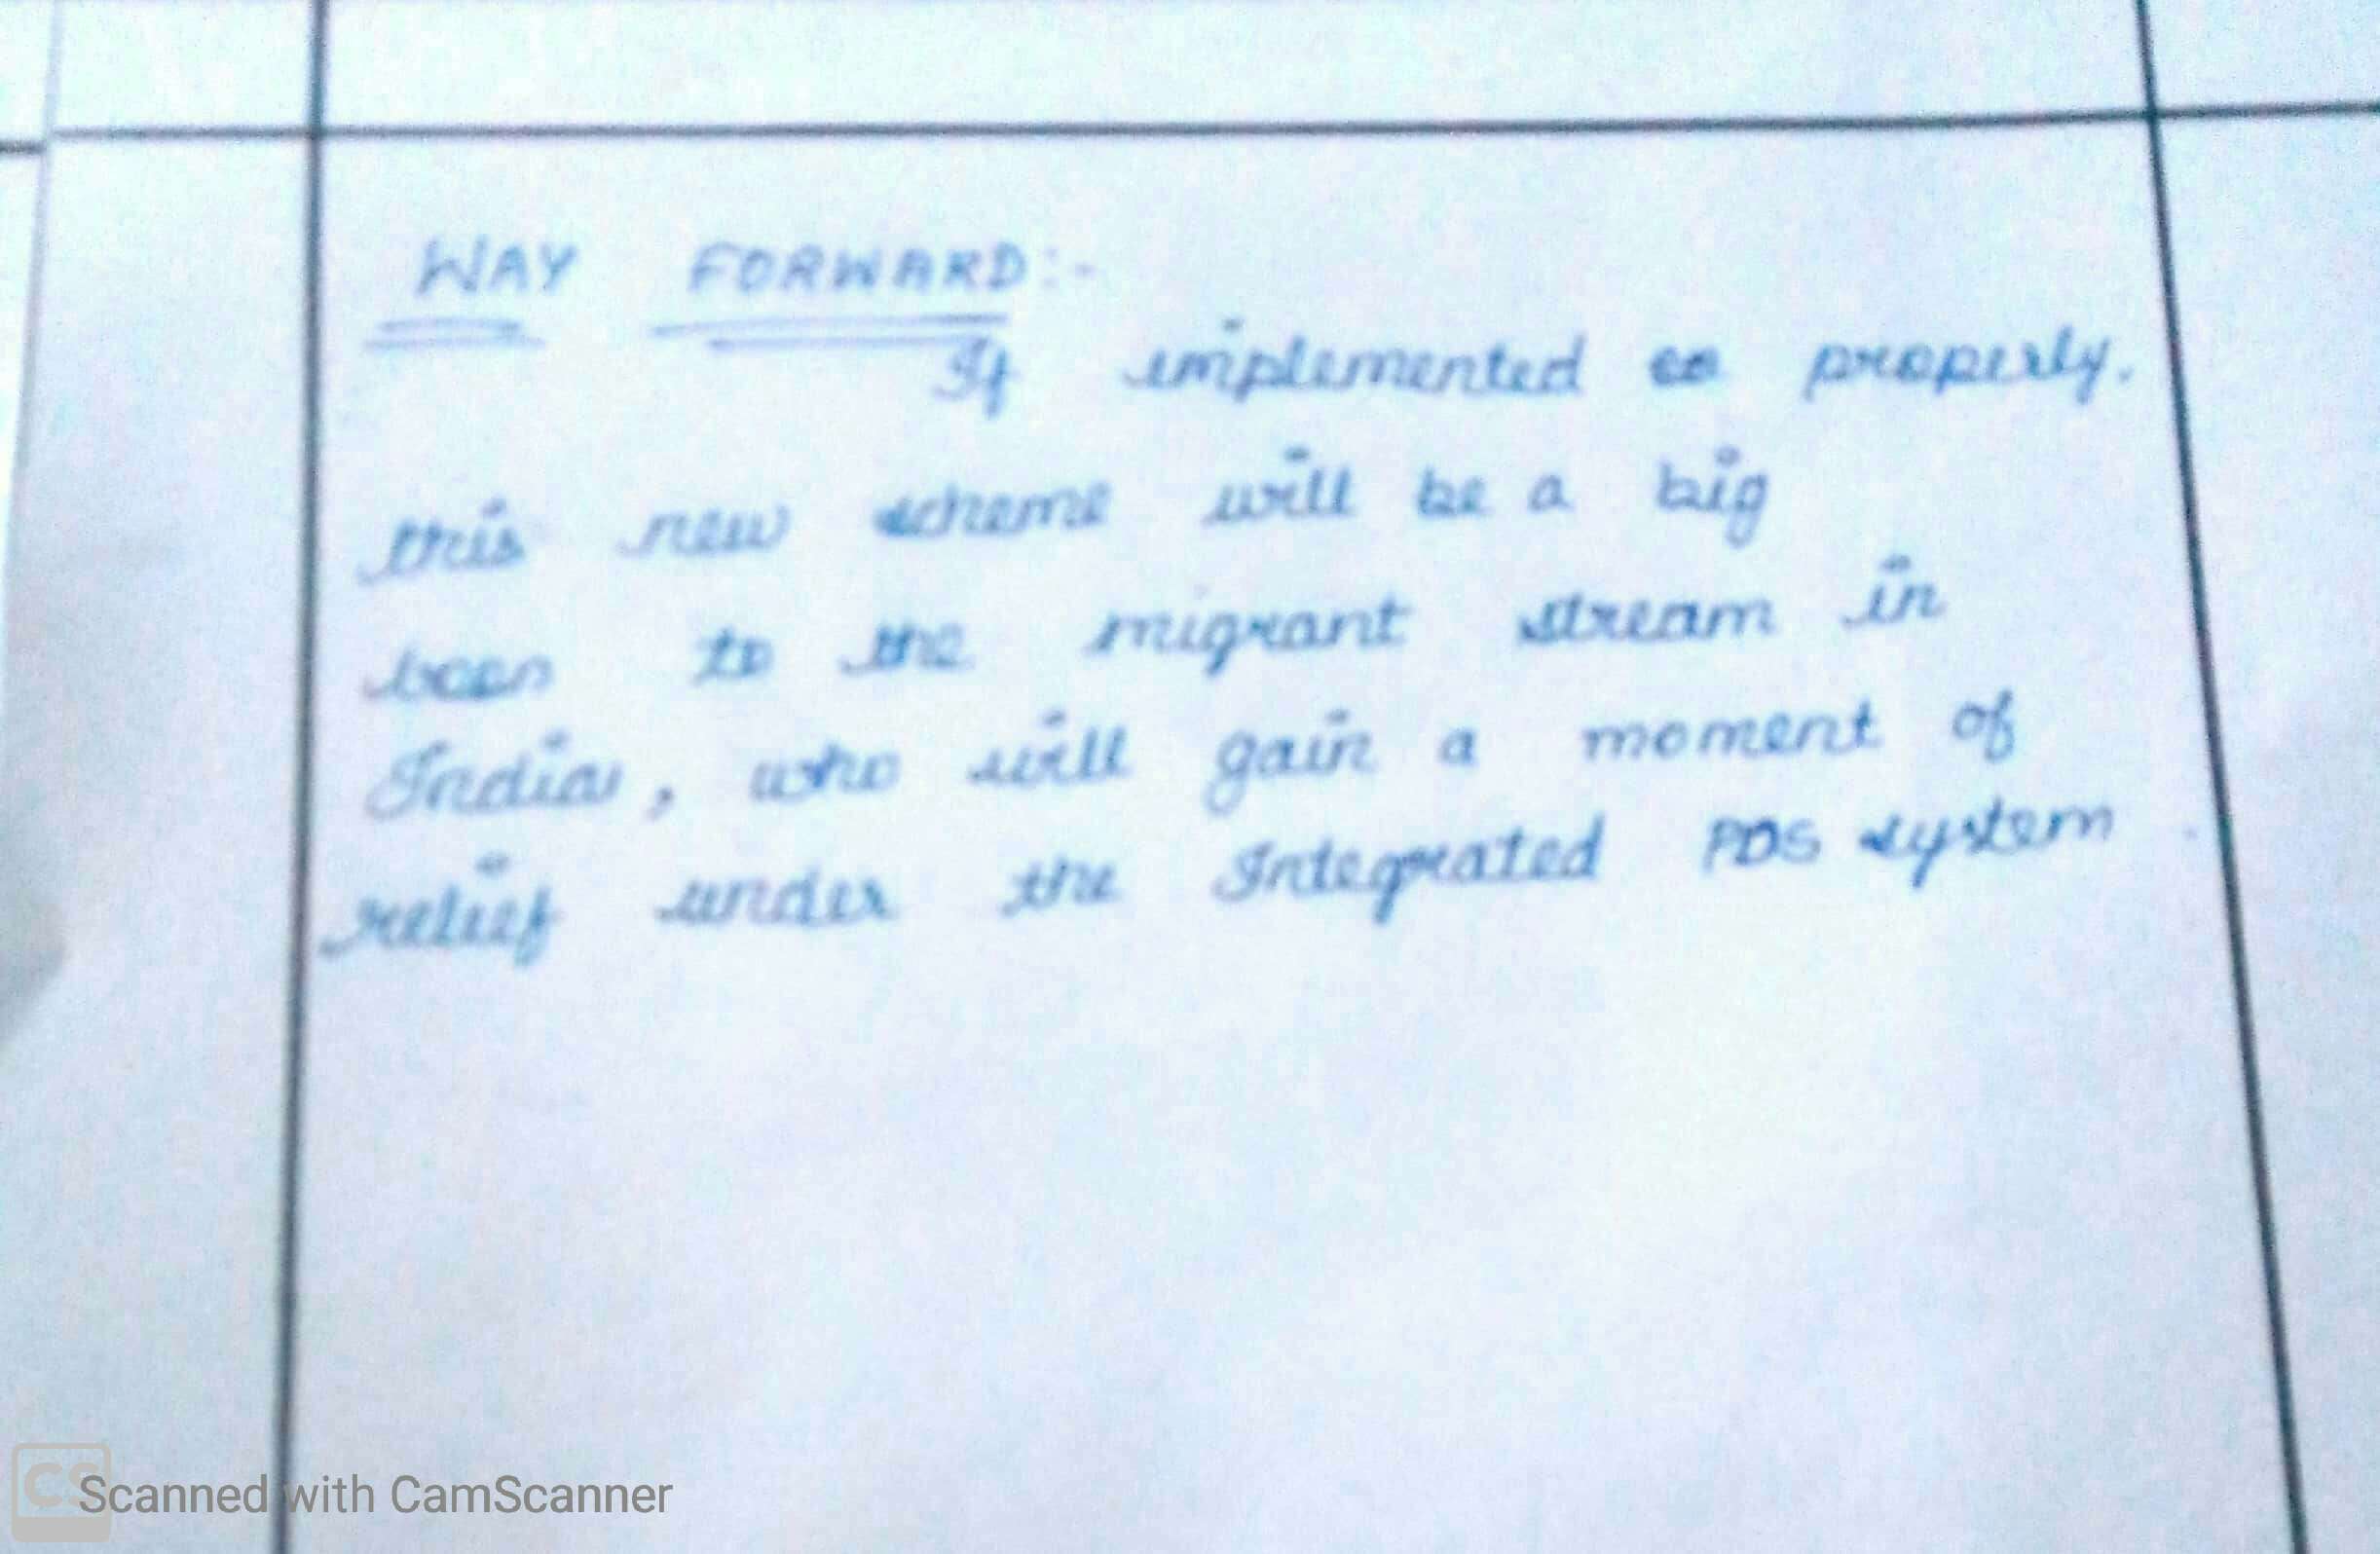 WAY FORWARD:-
If implemented properly.
this new scheme will be a big
to the migrant stream in
India, who will gain a moment of
relief under the Integrated PDS system
Scanned with CamScanner